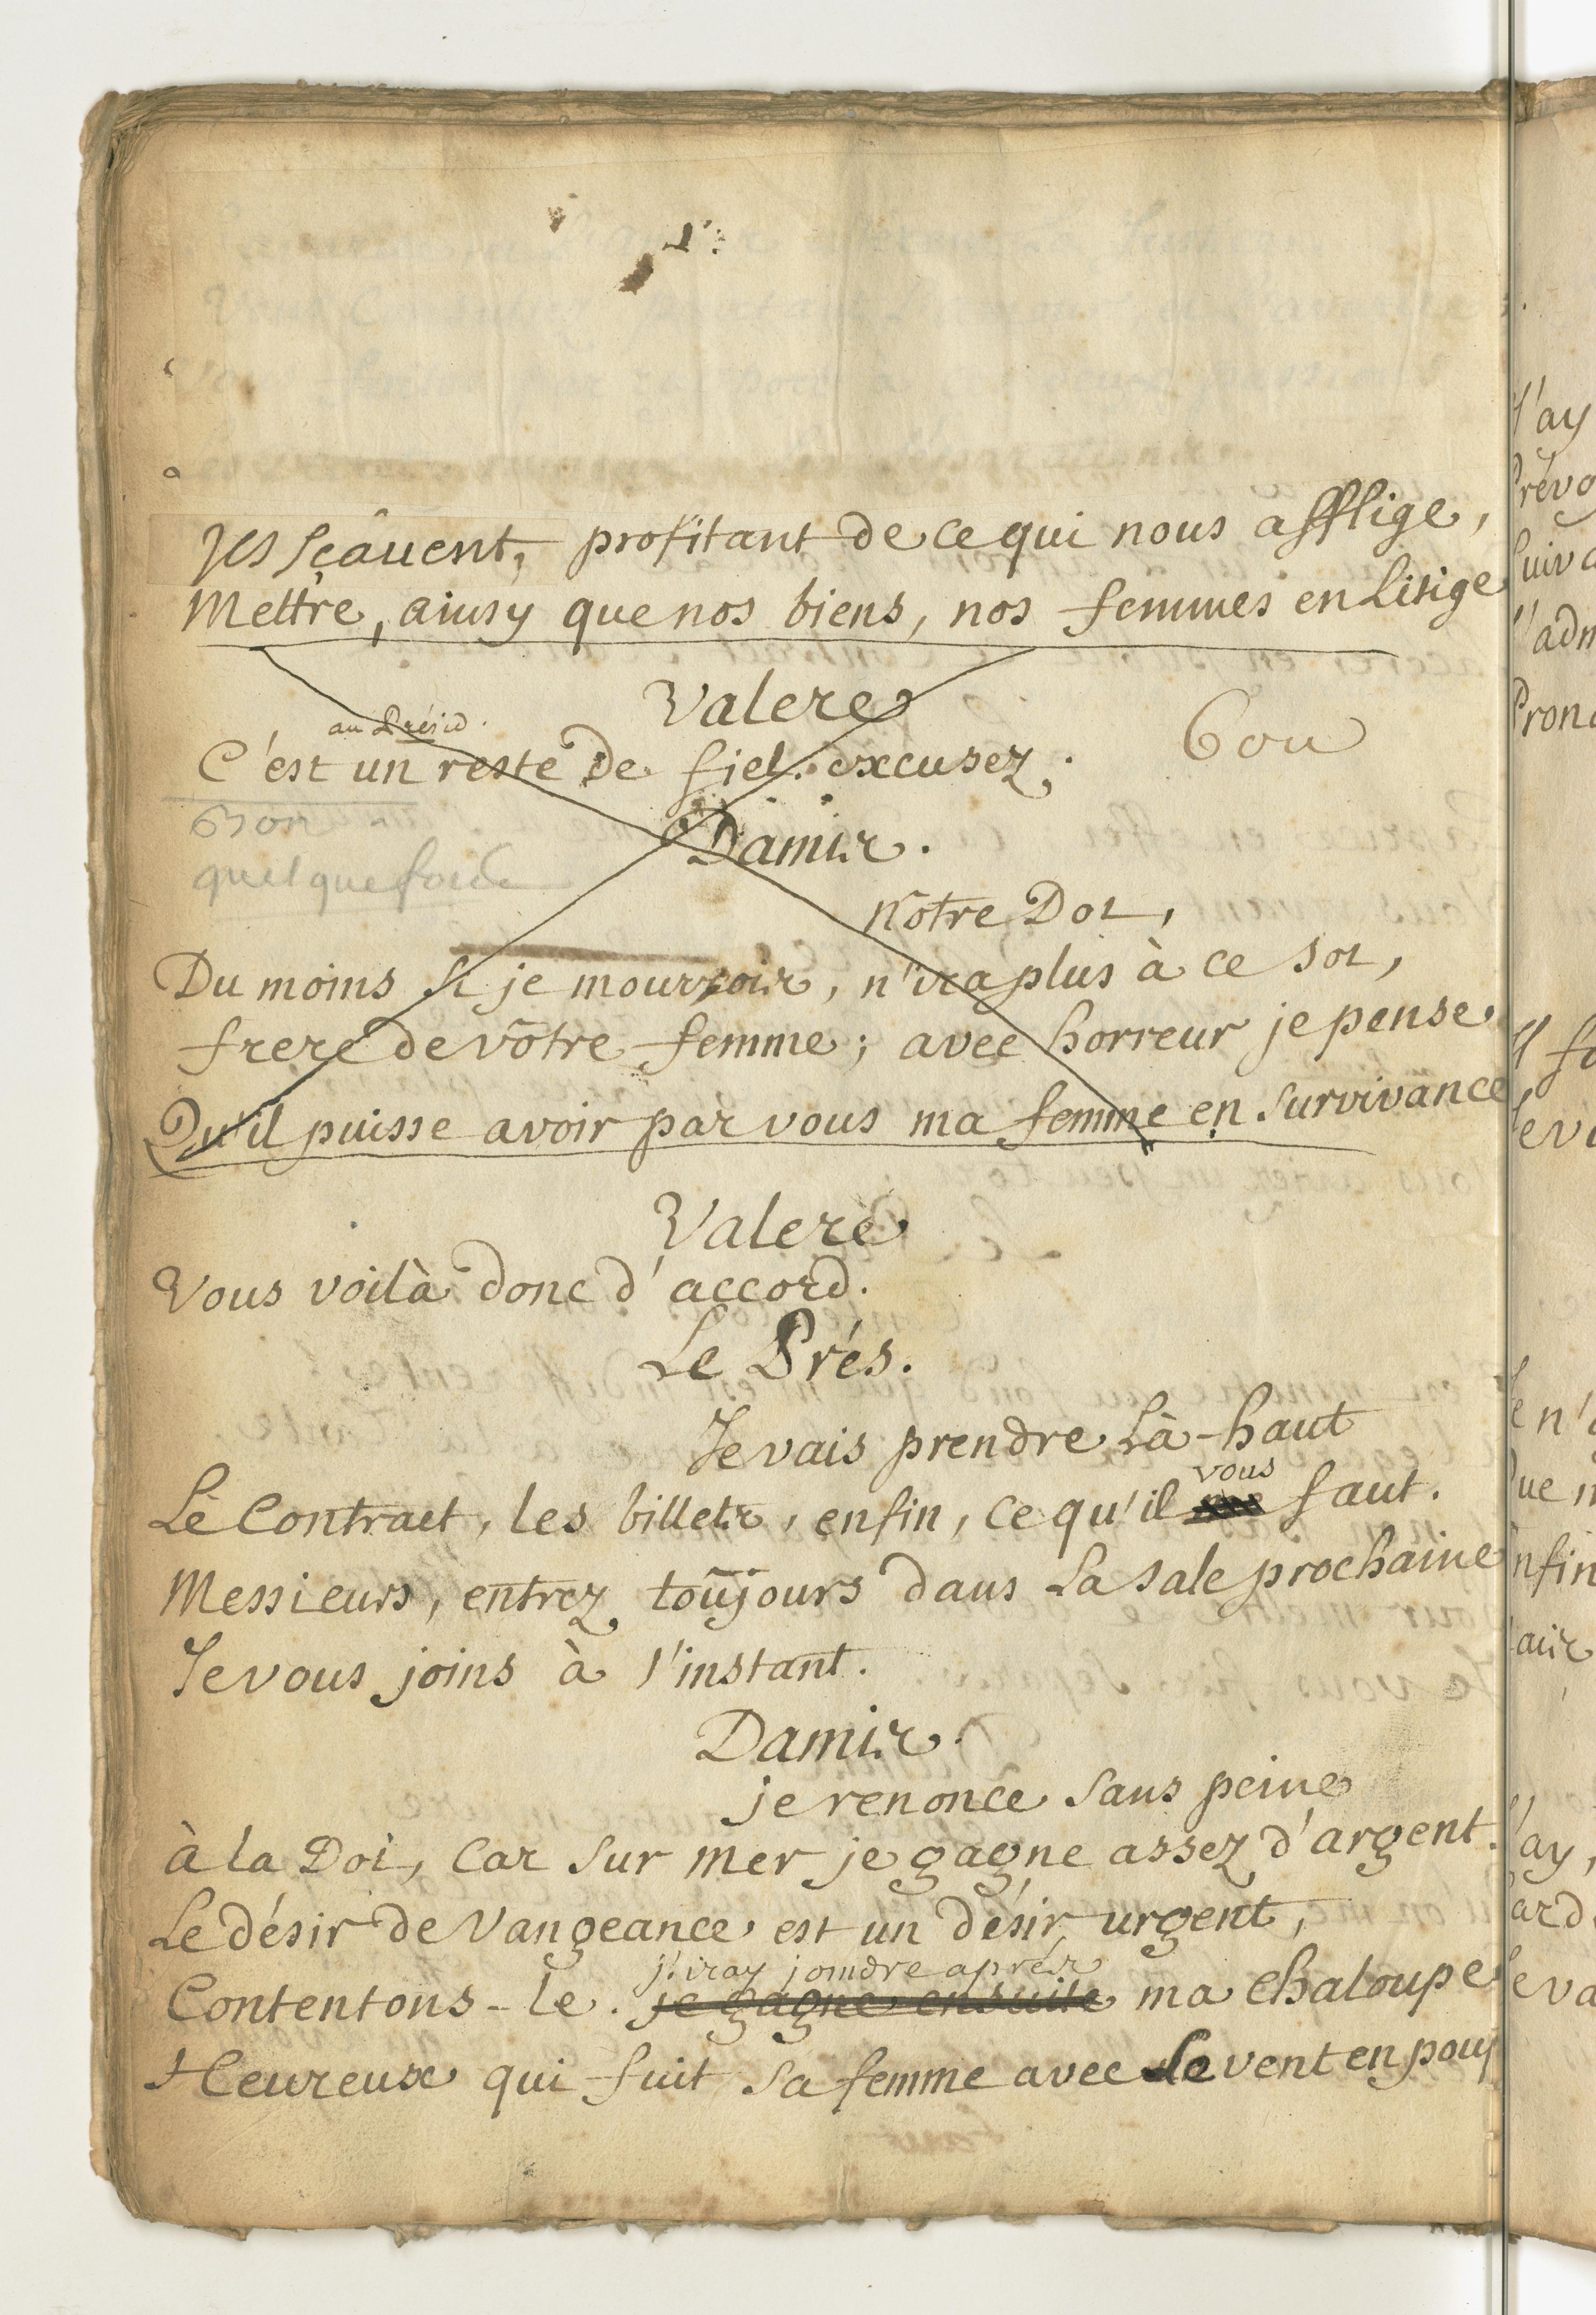 Ils sçâuent, profitant de ce qui nous afflige,
Mettre, ainsy que nos biens, nos femmes en Litige
Valere
au Présid.
C'est un reste De fiel. excusez.
Bon
Bon
quelquefois
Damis.
nôtre Dot,
Du moins si je mourrois, n'ira plus à ce sot,
frere de vôtre femme; avec horreur je pense
Qu'il puisse avoir par vous ma femme en survivance
Valere
Vous voilà donc d'accord.
Le Prés.
Je vais prendre Là-haut
vous
Le Contract, les billets, enfin, ce qu'il faut.
Messieurs, entrez toûjours dans La sale prochaine
Je vous joins à l'instant.
Damis.
je renonce sans peine
à la Dot, Car sur mer je gagne assez d'argent.
Le désir de Vangeance est un désir urgent,
j'iray joindre après
Contentons-le. je gagne ensuite ma chaloupe
Heureux qui fuit sa femme avec le vent en poup